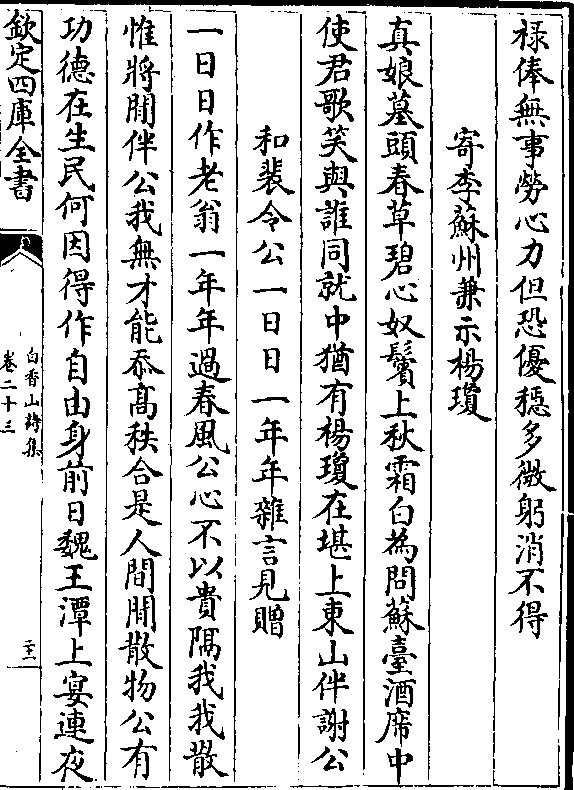 禄俸無事勞心力但恐優穩多微躬消不得
寄李蘇州兼示楊瓊
真娘墓頭春草碧心奴鬢上秋霜白為問蘇臺酒席中
使君歌笑與誰同就中猶有楊瓊在堪上東山伴謝公
和裴令公一日日一年年雜言見贈
一日日作老翁一年年過春風公心不以貴隔我我散
惟將閒伴公我無才能忝髙秩合是人間閒散物公有
功德在生民何因得作自由身前日魏王潭上宴連夜
欽定四庫全書
白香山詩集
卷二十三
二十二